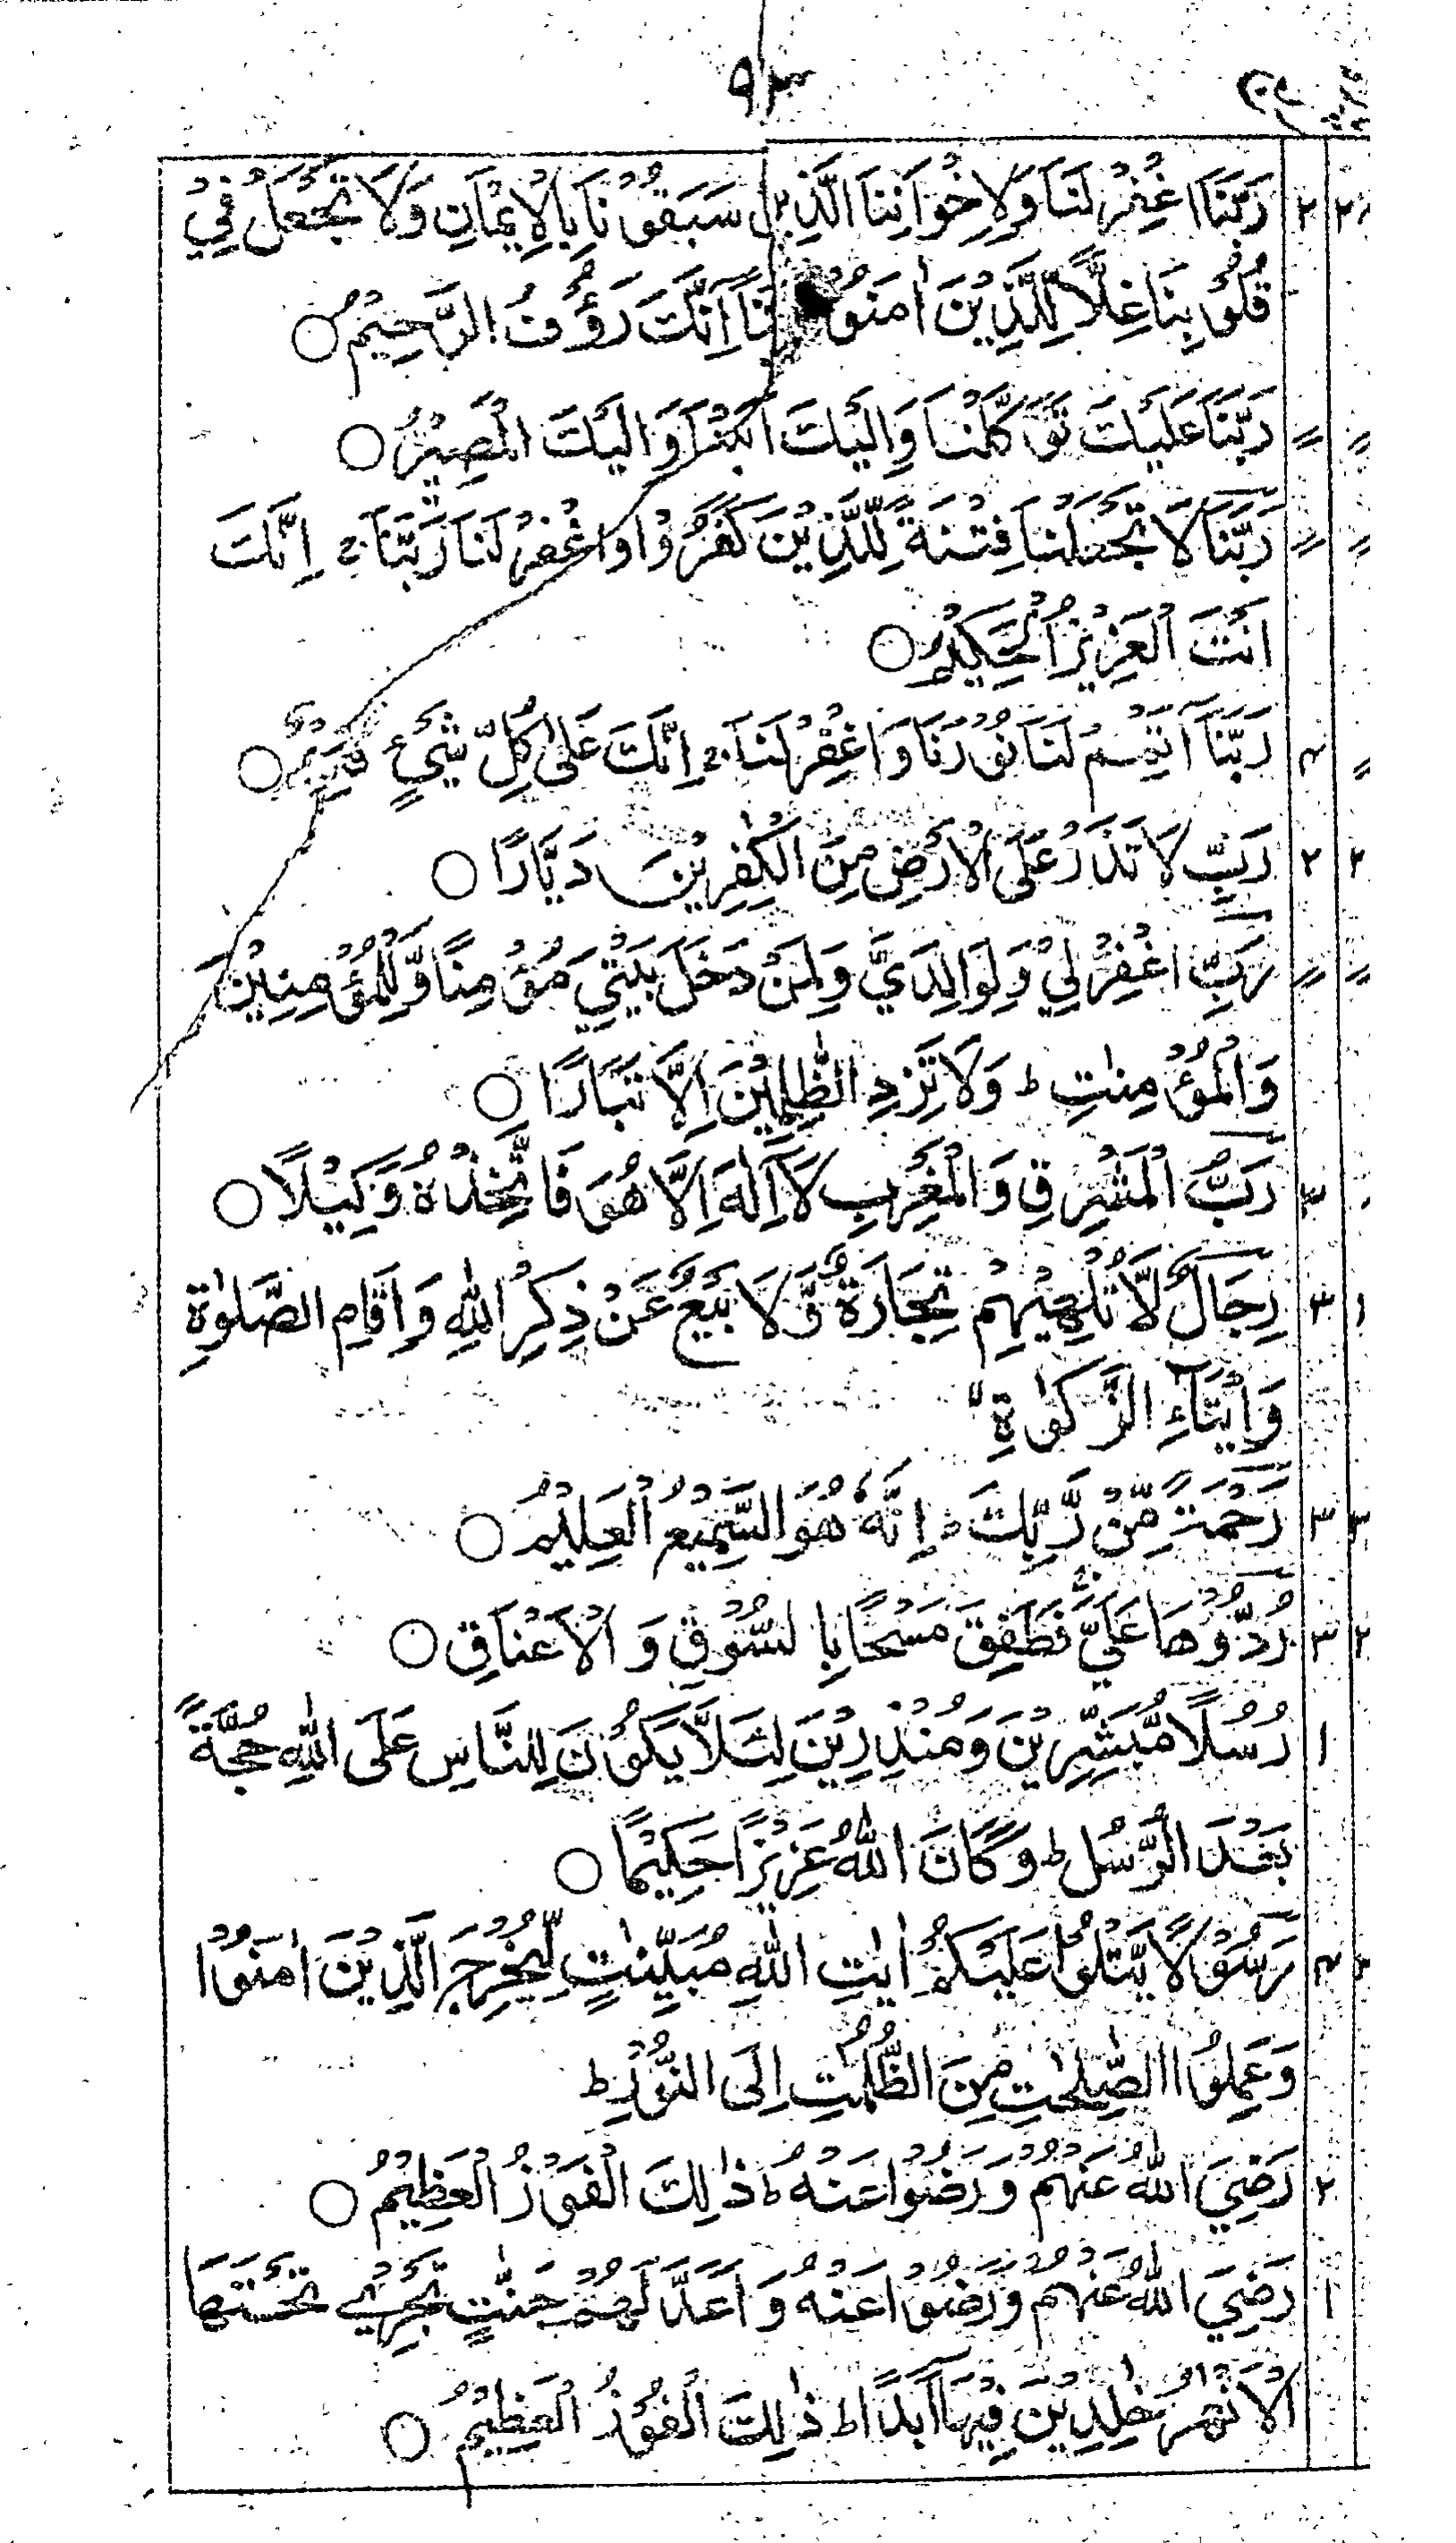 ۹۳
رَبَّنَا اغْفِرْ لَنَا وَلِاِخْوَانِنَا الَّذِيْنَ سَبَقُوْنَا بِالْاِيْمَانِ وَلَا تَجْعَلْ فِيْ
قُلُوْبِنَا غِلًّا لِّلَّذِيْنَ اٰمَنُوْا رَبَّنَآ اِنَّكَ رَؤُفُ الرَّحِيْمٌ ○
رَبَّنَا عَلَيْكَ تَوَكَّلْنَا وَاِلَيْكَ اَنَبْنَا وَاِلَيْكَ الْمَصِيْرُ ○
رَبَّنَا لَا تَجْعَلْنَا فِتْنَةً لِّلَّذِيْنَ كَفَرُوْا وَاغْفِرْ لَنَا رَبَّنَا ج اِنَّكَ
اَنْتَ الْعَزِيْزُ الْحَكِيْمُ ○
رَبَّنَآ اَتْمِمْ لَنَا نُوْرَنَا وَاغْفِرْ لَنَا ج اِنَّكَ عَلٰى كُلِّ شَيْءٍ قَدِيْرٌ ○
رَبِّ لَا تَذَرْ عَلَى الْاَرْضِ مِنَ الْكٰفِرِيْنَ دَيَّارًا ○
رَبِّ اغْفِرْ لِيْ وَلِوَالِدَيَّ وَلِمَنْ دَخَلَ بَيْتِيَ مُؤْمِنًا وَّلِلْمُؤْمِنِيْنَ
وَالْمُؤْمِنٰتِ ط وَلَا تَزِدِ الظّٰلِمِيْنَ اِلَّا تَبَارًا ○
رَبُّ الْمَشْرِقِ وَالْمَغْرِبِ لَآ اِلٰهَ اِلَّا هُوَ فَاتَّخِذْهُ وَكِيْلًا ○
رِجَالٌ لَّا تُلْهِيْهِمْ تِجَارَةٌ وَّلَا بَيْعٌ عَنْ ذِكْرِ اللّٰهِ وَاِقَامِ الصَّلٰوةِ
وَاِيْتَآءِ الزَّكٰوةِ
رَحْمَةً مِّنْ رَّبِّكَ ط اِنَّهٗ هُوَ السَّمِيْعُ الْعَلِيْمُ ○
رُدُّوْهَا عَلَيَّ فَطَفِقَ مَسْحًا بِالسُّوْقِ وَالْاَعْنَاقِ ○
رُسُلًا مُّبَشِّرِيْنَ وَمُنْذِرِيْنَ لِئَلَّا يَكُوْنَ لِلنَّاسِ عَلَى اللّٰهِ حُجَّةٌ
بَعْدَ الرُّسُلِ ط وَكَانَ اللّٰهُ عَزِيْزًا حَكِيْمًا ○
رَسُوْلًا يَّتْلُوْا عَلَيْكُمْ اٰيٰتِ اللّٰهِ مُبَيِّنٰتٍ لِّيُخْرِجَ الَّذِيْنَ اٰمَنُوْا
وَعَمِلُوا الصّٰلِحٰتِ مِنَ الظُّلُمٰتِ اِلَى النُّوْرِ ط
رَضِيَ اللّٰهُ عَنْهُمْ وَرَضُوْا عَنْهُ ط ذٰلِكَ الْفَوْزُ الْعَظِيْمُ ○
رَضِيَ اللّٰهُ عَنْهُمْ وَرَضُوْا عَنْهُ وَاَعَدَّ لَهُمْ جَنّٰتٍ تَجْرِيْ تَحْتَهَا
الْاَنْهٰرُ خٰلِدِيْنَ فِيْهَآ اَبَدًا ط ذٰلِكَ الْفَوْزُ الْعَظِيْمُ ○